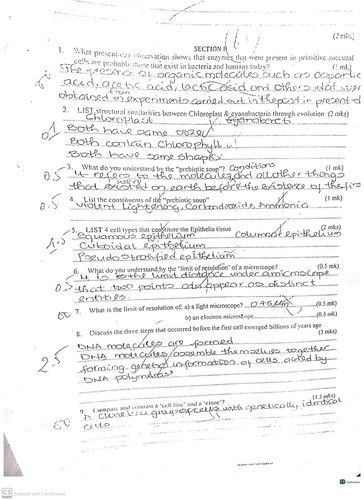 (2 mks)
SECTION B
1. What present-day observation shows that enzymes that were present in primitive ancestral
cells are probably those that exist in bacteria and humans today? (1 mk)
The presence of organic molecules such as aspartic
acid, acetic acid, lactic acid and others that were
obtained from experiments carried out in the past in present d
2. LIST structural similarities between Chloroplast & cyanobacteria through evolution (2 mks)
Chloroplast / cyanobacteri
0.1
Both have same
Both contain chlorophyll
Both have same shapes
3. What do you understand by the "prebiotic soup"? Conditions (1 mk)
0.5
It refers to the molecules and all other things
that existed on earth before the existence of the firs
4. List the constituents of the "prebiotic soup" (1 mk)
0.5
Violent Lightening, Carbondioxide, Ammonia
5. LIST 4 cell types that constitute the Epithelia tissue (2 mks)
Squamous epithelium Columnar epithelium
Cuboidal epithelium
Pseudostratified epithelium
6. What do you understand by the "limit of resolution" of a microscope? (0.5 mk)
It is the limit distance under a microscope
0.5
that two points can appear as distinct
entities.
7. What is the limit of resolution of: a) a light microscope? (0.5 mk)
00
b) an electron microscope (0.5 mk)
8. Discuss the three steps that occurred before the first cell emerged billions of years ago (3 mks)
DNA molecules are formed
2.5
DNA molecules assemble themselves together
forming genetic information of cells aided by
DNA polymeras
9. Compare and contrast a 'cell line' and a 'clone'? (1.5 mks)
00
A clone is a group of cells with genetically identical
cells
CS Scanned with CamScanner